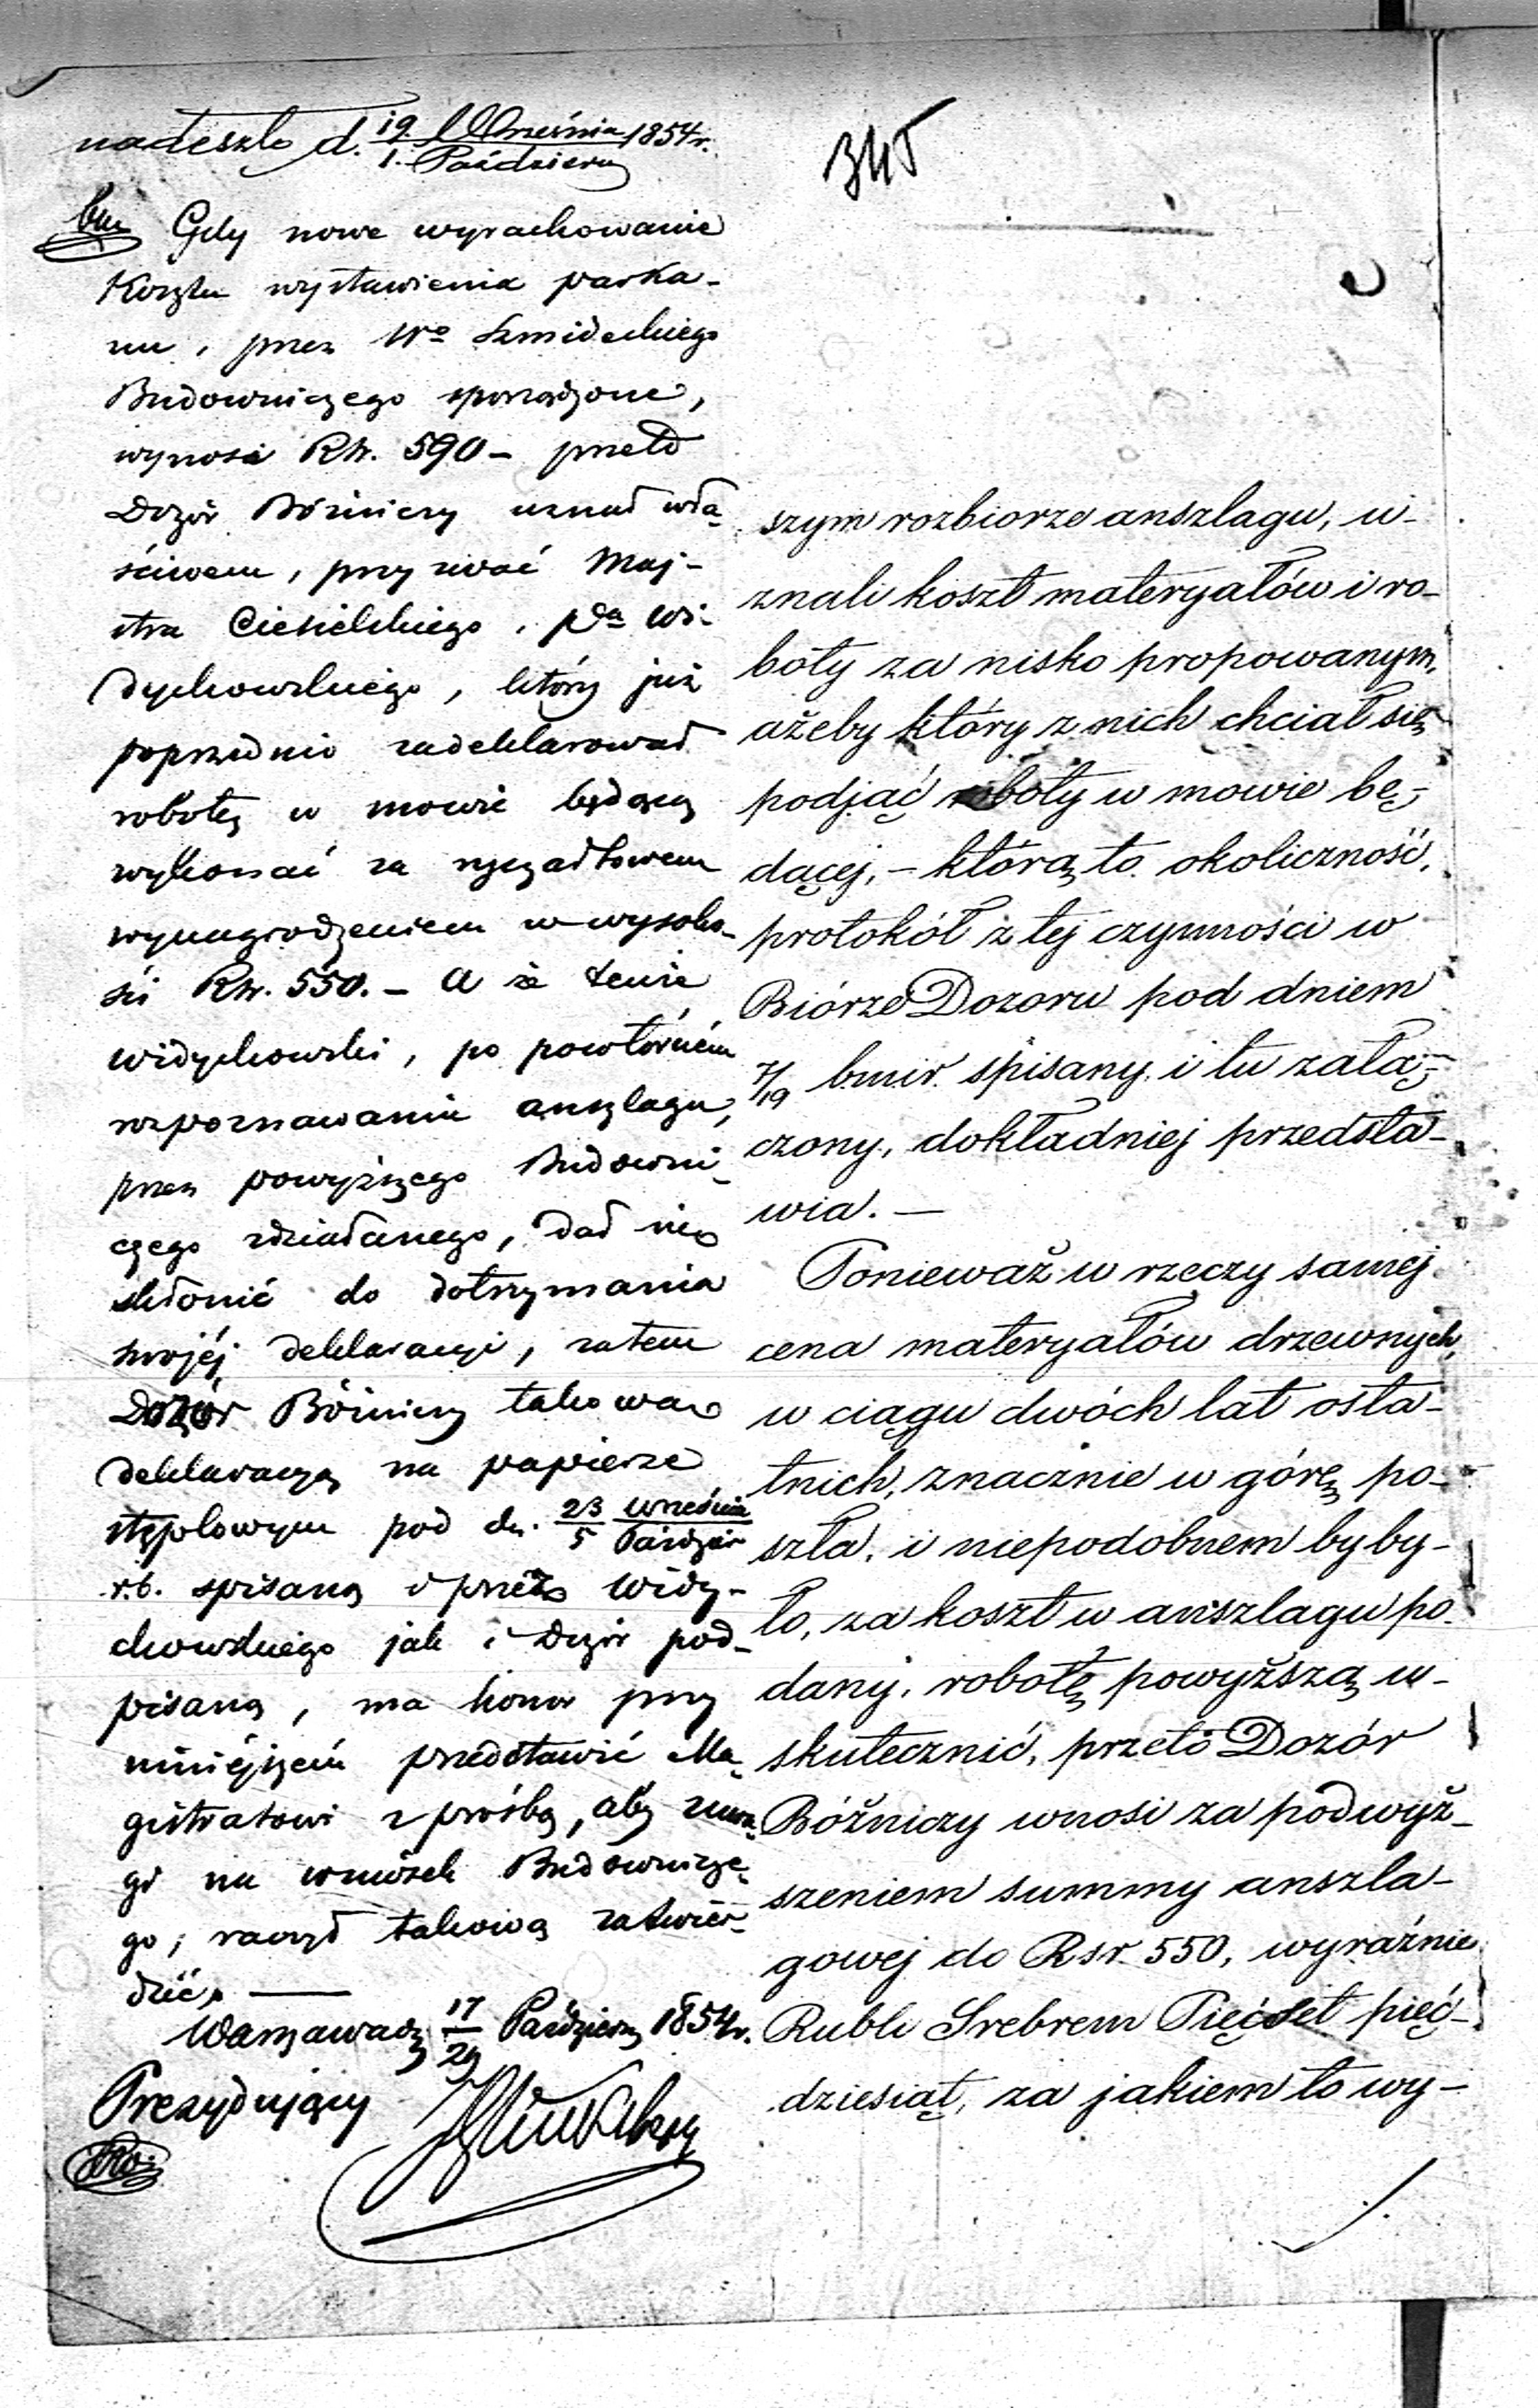 nadeszło d. 19. Września / 1. Paździer 1854 r.
345
Gdy nowe wyrachowanie
Kosztu wystawienia parka-
nu, przez Wo Szmideckiego
Budowniczego sporządzone,
wynosi Rsr. 590 – przeto
Dozór Bóżniczy uznał wła-
ściwem, przyzwać Maj-
stra Ciesielskiego, Pa Wi-
dychowskiego, który już
poprzednio zadeklarował
robotę w mowie będącą
wykonać za ryczałtowem
wynagrodzeniem w wysoko-
ści Rsr. 550. – A że tenże
Widychowski, po powtórném
rozpoznawaniu anszlagu,
przez powyższego Budowni-
czego zdziałanego, dał się
skłonić do dotrzymania
swojéj deklaracyi, zatem
Dozór Bóżniczy takowa
deklaracyą na papierze
stęplowym pod dn. 23/5 Września/Paździer
r.b. spisaną i przez Widy-
chowskiego jak i Dozór pod-
pisaną, ma honor przy
niniéjszém przedstawić Ma-
gistratowi z prośbą, aby zuwa-
gi na wniosek Budownicze-
go, raczył takową zatwier-
dzić. —
Warszawa d. 17/29 Paździer 1854 r.
Prezydujący
szym rozbiorze anszlagu, u-
znali koszt materyałów i ro-
boty za nisko propowanym,
ażeby który z nich chciał się
podjąć roboty w mowie bę-
dącej, – którą to okoliczność,
protokół z tej czynności w
Biórze Dozoru pod dniem
7/19 b.m.i r. spisany i tu załą-
czony, dokładniej przedsta-
wia. —
Ponieważ w rzeczy samej
cena materyałów drzewnych,
w ciągu dwóch lat osta-
tnich, znacznie w górę po-
szła, i niepodobnem by by-
ło, za koszt w anszlagu po-
dany, robotę powyższą u-
skutecznić, przeto Dozór
Bóżniczy wnosi za podwyż-
szeniem summy anszla-
gowej do Rsr. 550, wyraźnie
Rubli Srebrem Pięćset pięć-
dziesiąt, za jakiem to wy-